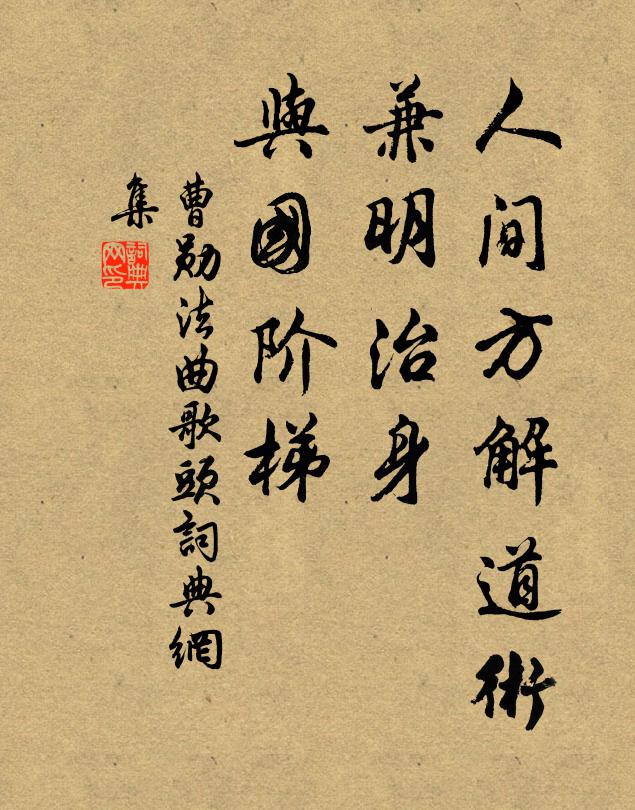 人间方解道術
兼明治身
與國阶梯
曹勛法曲歌頭詞典網
集
詞典
网印